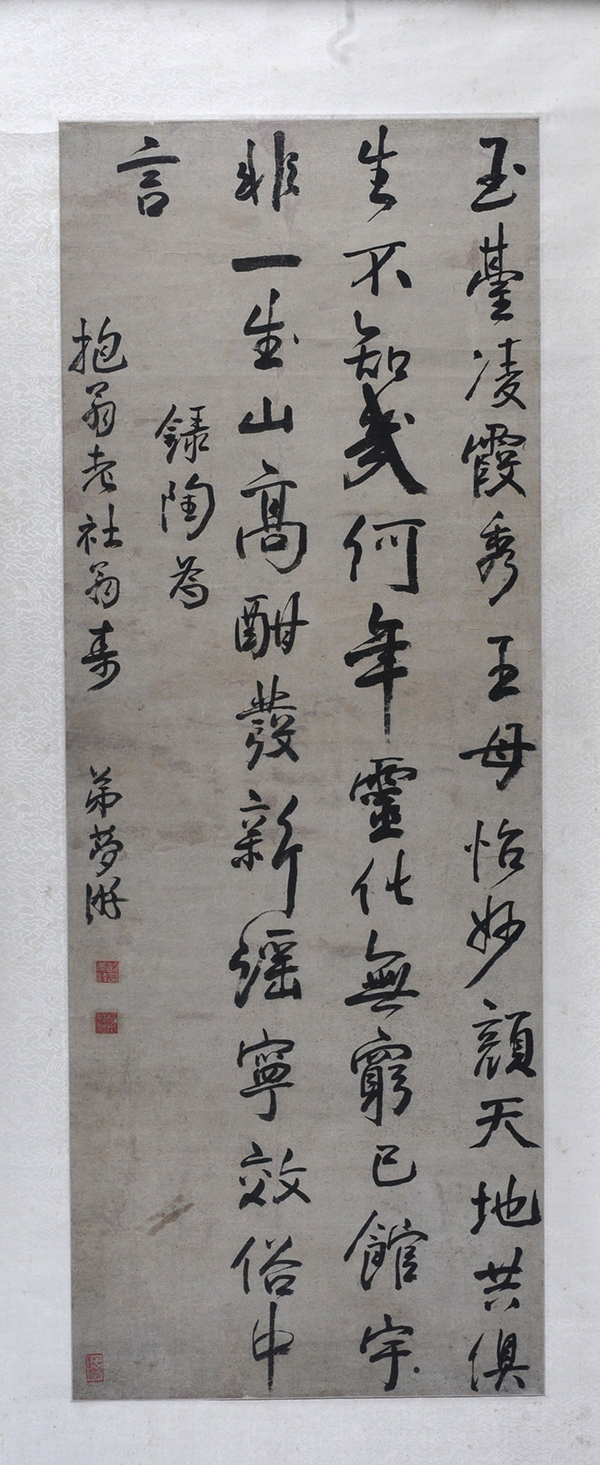 玉臺凌霞秀王母怡妙顏天地共俱
生不知幾何年靈化無窮已館宇
非一山高酣發新謠寧效俗中
言
錄陶為
抱翁老社翁壽 弟夢游